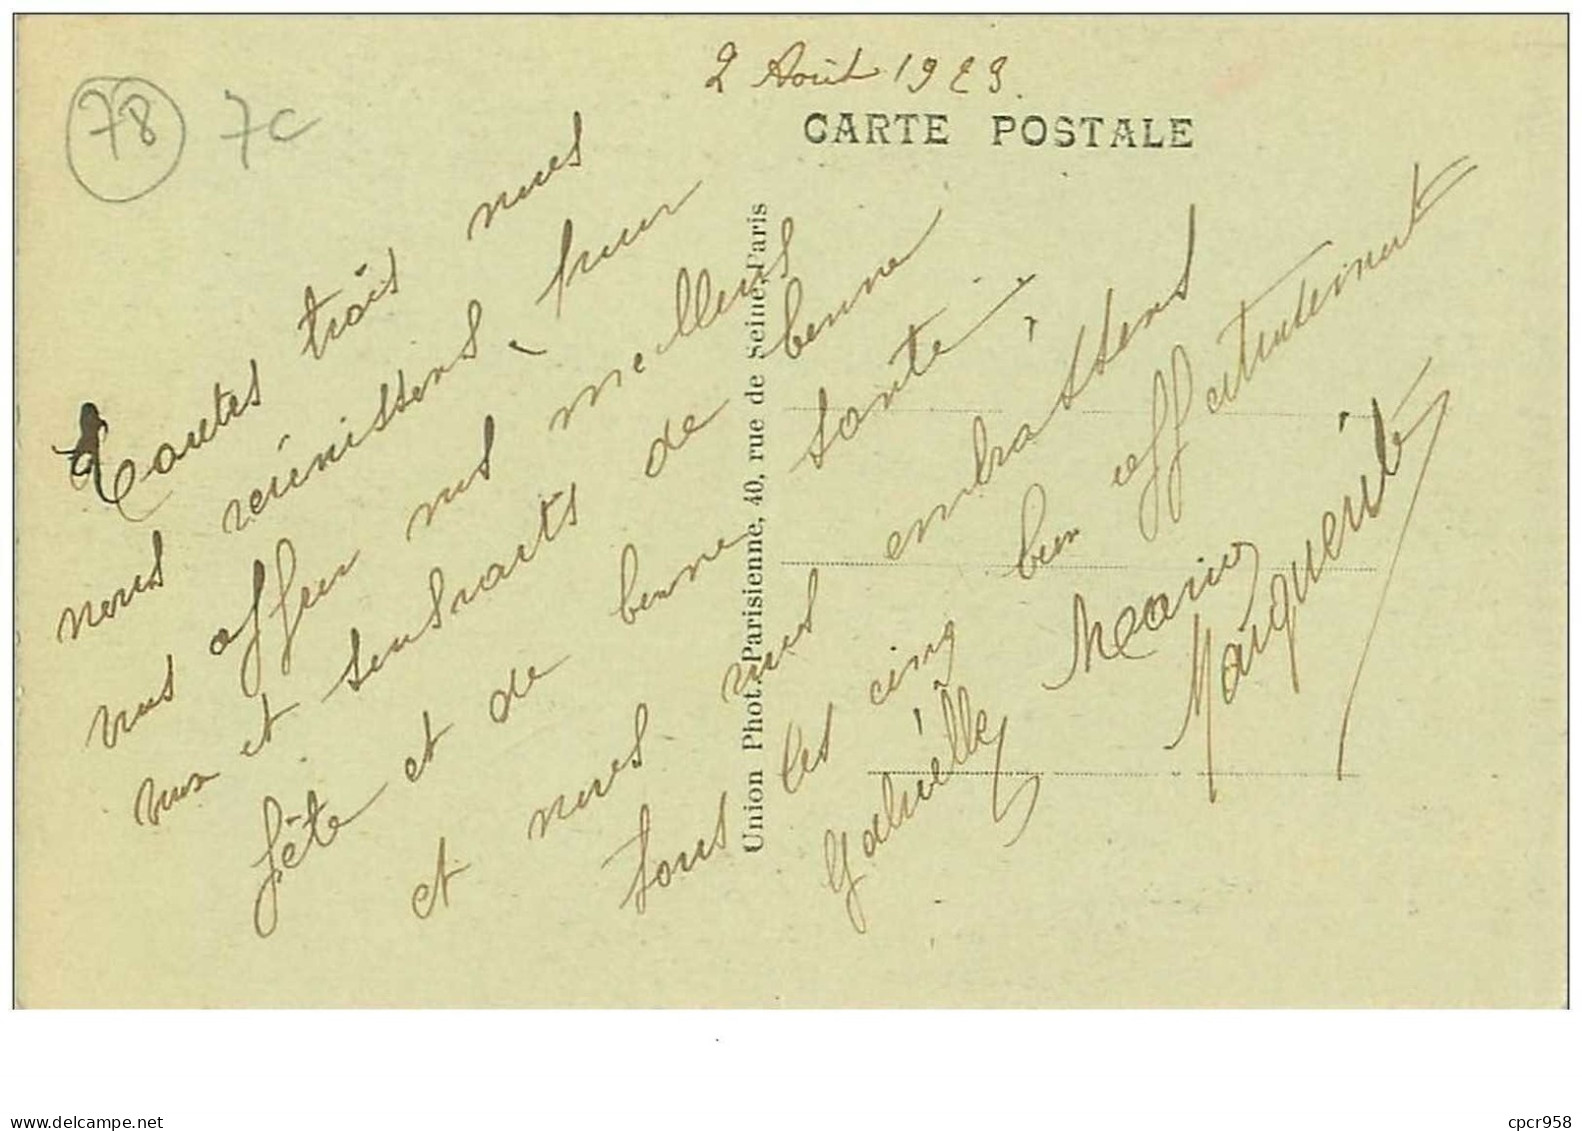 2 Août 1923.
CARTE POSTALE
78
7c
Toutes trois nous
nous réunissons, pour
vous offrir nos meilleurs
vœux et souhaits de bonne
fête et de bonne santé,
et nous vous embrassons
tous les cinq bien affectueusement
Gabrielle Marius Marguerite
Union Phot. Parisienne, 40, rue de Seine, Paris
www.delcampe.net
cpcr958